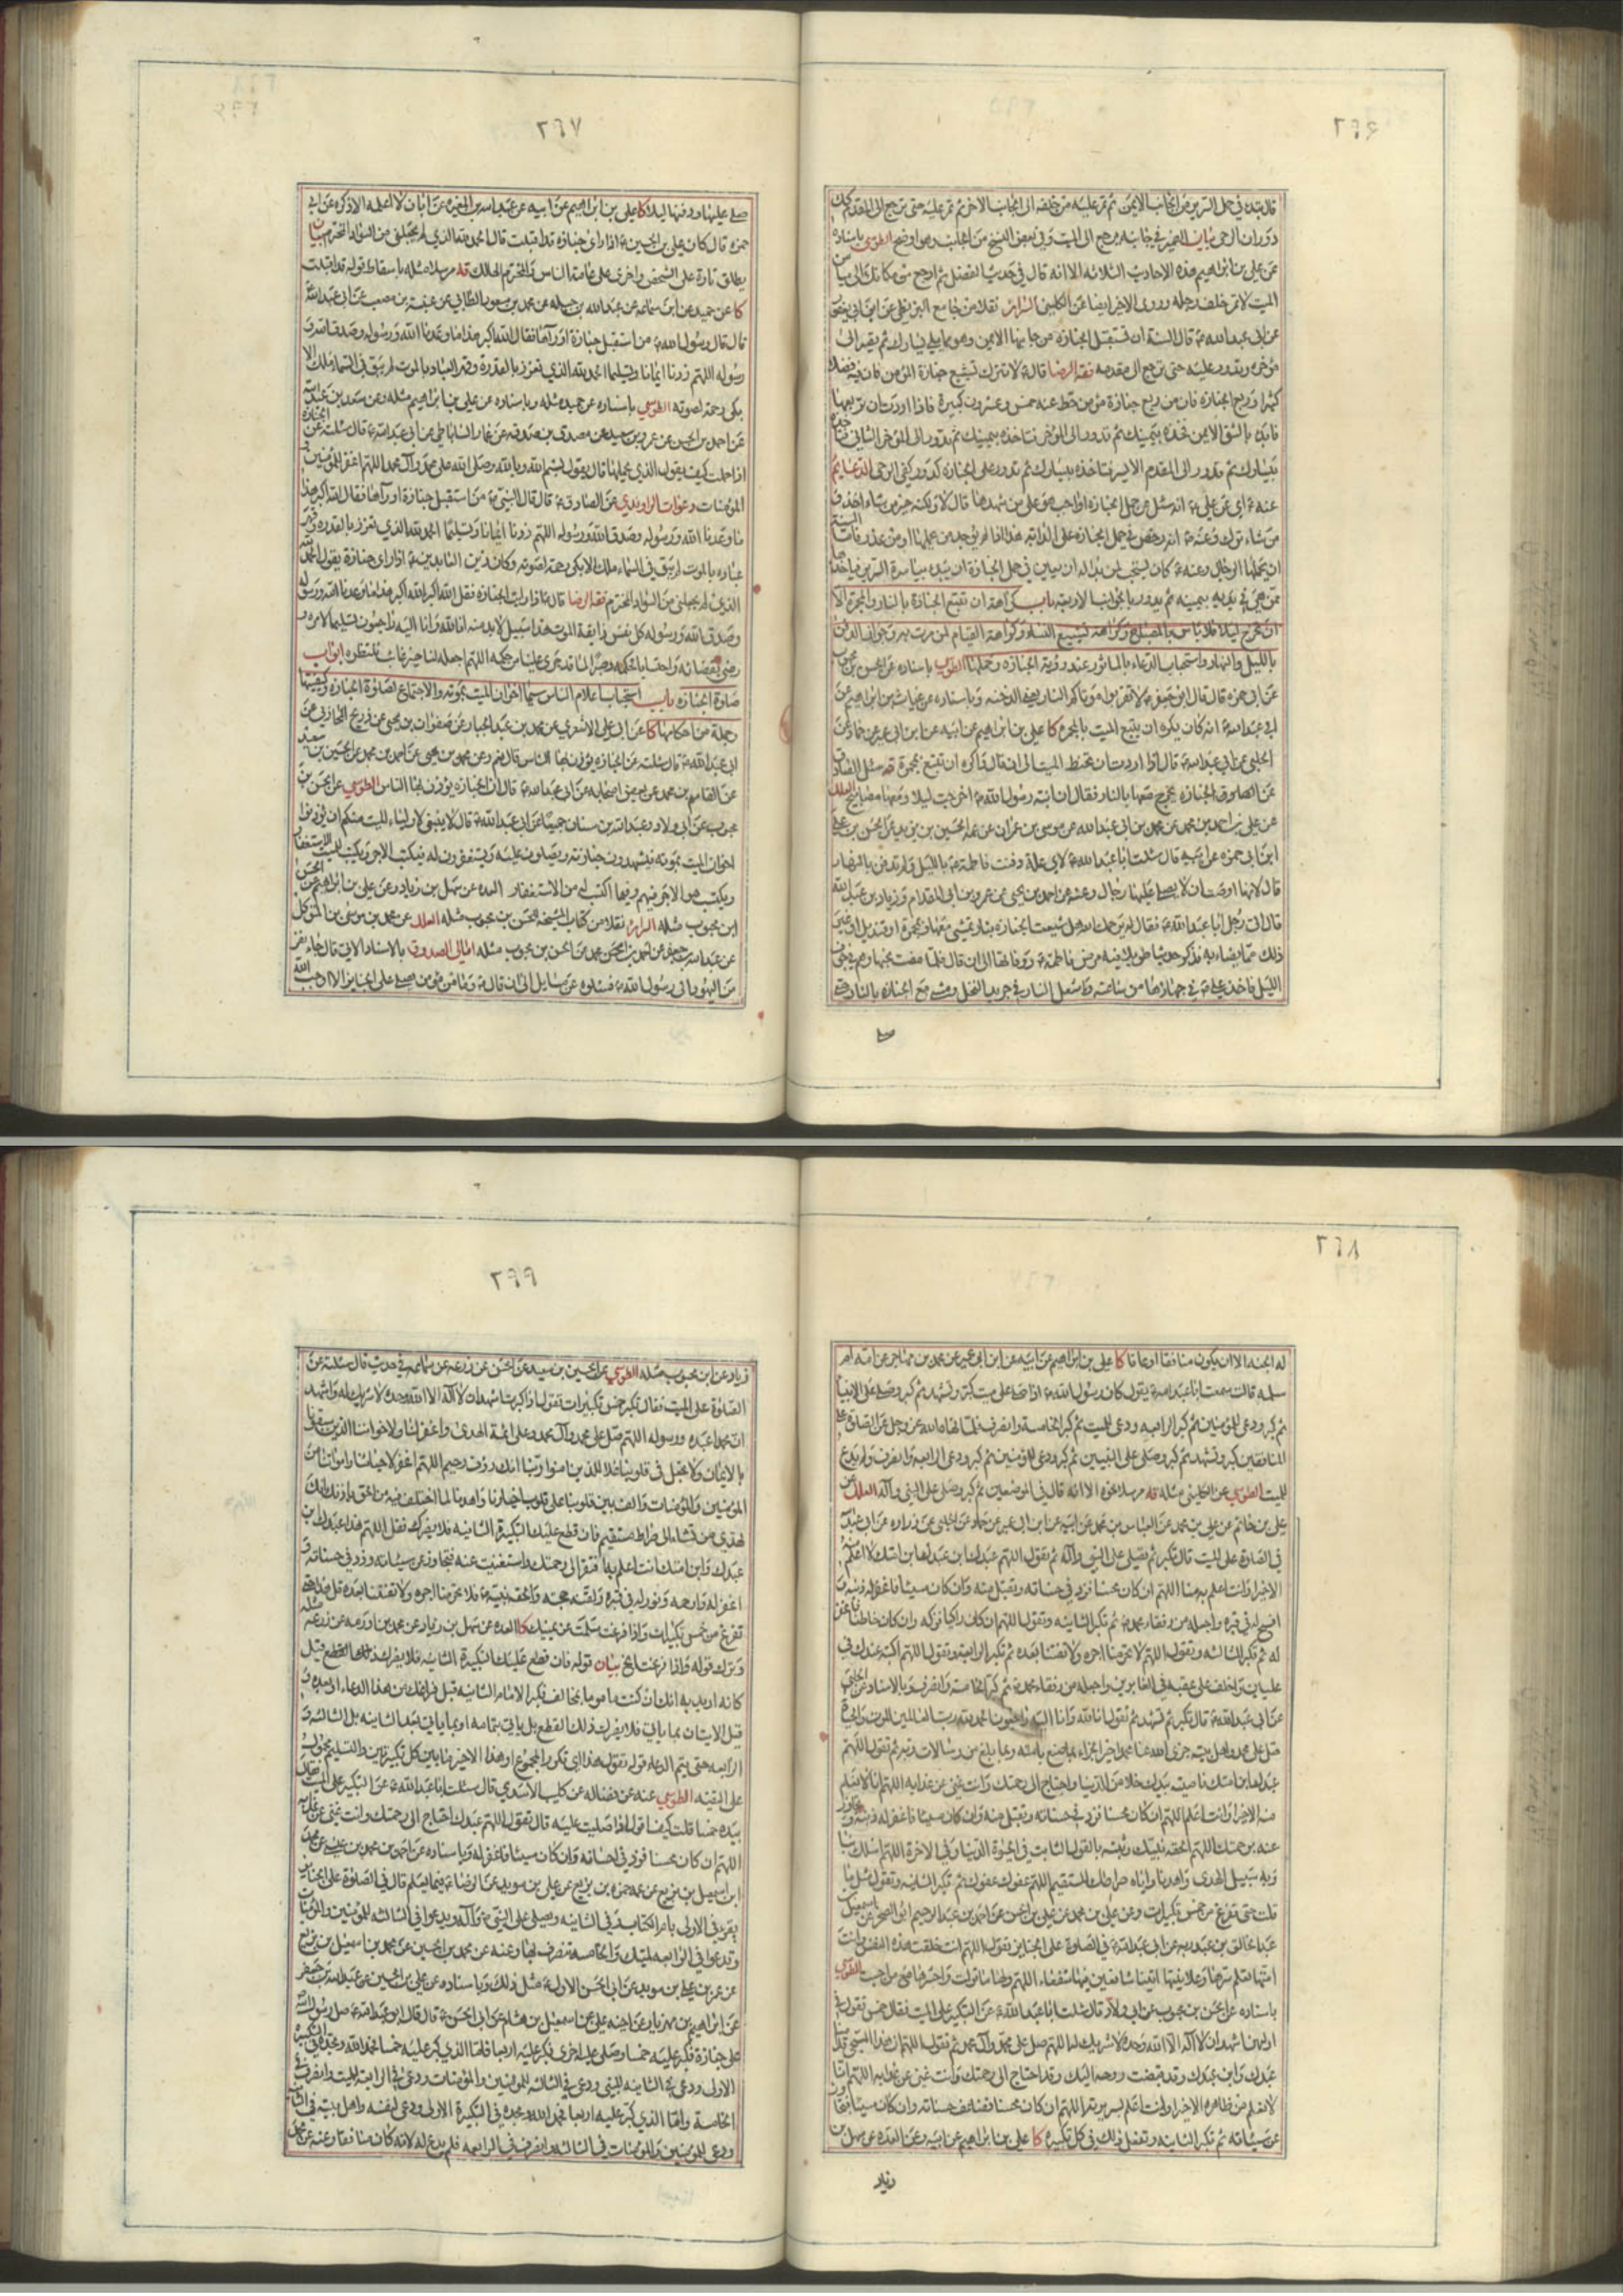 ٢٦٦
قال تبدء في حمل السرير من الجانب الايمن ثم تمر عليه من خلفه الى الجانب الاخر ثم تمر عليه حتى ترجع الى المقدم كذلك
دوران الرحى
عن علي بن ابراهيم هذه الاحاديث الثلاثة الا انه قال في حديث الفضل ثم ارجع من مكانك الى ميامن
الميت لا تمر خلف رجله وروى الاخير ايضا عن الكليني السرائر نقلا من جامع البزنطي عن ابن ابي يعفور
عن ابي عبد الله ع قال السنة ان تستقبل الجنازة من جانبها الايمن وهو مما يلي يسارك ثم تصير الى
مؤخره وتدور عليه حتى ترجع الى مقدمه فقه الرضا قال ع لا تترك تشييع جنازة المؤمن فان فيه فضلا
كثيرا وربع الجنازة فان من ربع جنازة مؤمن حط عنه خمس وعشرون كبيرة فاذا اردت ان تربعها
فابدء بالشق الايمن فخذه بيمينك ثم تدور الى المؤخر فتاخذه بيمينك ثم تدور الى المؤخر الثاني فتاخذه
بيسارك ثم تدور الى المقدم الايسر فتاخذه بيسارك ثم تدور على الجنازة كدور كفي الرحى الدعائم
عنه ع اي عن علي ع انه سئل عن حمل الجنازة اواجب هو على من شهدها قال لا ولكنه خير من شاء اخذ و
من شاء ترك وعنه ع انه رخص في حمل الجنازة على الدابة هذا اذا لم يوجد من يحملها او من عذر فاما السنة
ان يحملها الرجال وعنه ع كان يستحب لمن بدا له ان يعين في حمل الجنازة ان يبدء بياسرة السرير فياخذها
ممن هي في يديه بيمينه ثم يدور بالجوانب الاربعة باب كراهة ان تتبع الجنازة بالنار والمجمرة الا
ان تخرج ليلا فلا باس بالمصباح وكراهة تشييع النساء وكراهة القيام لمن مرت به وجواز الدفن
بالليل والنهار واستحباب الدعاء بالماثور عند رؤية الجنازة وحملها الطوسي باسناده عن الحسن بن محبوب
عن ابي حمزة قال قال ابو جعفر ع لا تقربوا موتاكم النار يعني الدخنة وباسناده عن غياث بن ابراهيم عن
ابي عبد الله ع انه كان يكره ان يتبع الميت بالمجمرة كا علي بن ابراهيم عن ابيه عن ابن ابي عمير عن حماد عن
الحلبي عن ابي عبد الله ع قال اذا اردت ان تحنط الميت الى ان قال واكره ان تتبع بمجمرة قه سئل الصادق
عن الجنازة يخرج معها بالنار فقال ان ابنة رسول الله ص اخرجت ليلا ومعها مصابيح العلل
عن علي بن احمد بن محمد عن محمد بن ابي عبد الله عن موسى بن عمران عن عمه الحسين بن يزيد عن الحسن بن علي
ابن ابي حمزة عن ابيه قال سئلت ابا عبد الله ع لاي علة دفنت فاطمة ع بالليل ولم تدفن بالنهار
قال لانها اوصت ان لا يصلي عليها رجال وعنه عن احمد بن يحيى عن عمرو بن ابي المقدام وزياد بن عبد الله
قال اتى رجل ابا عبد الله ع فقال له يرحمك الله هل تشيعت الجنازة بنار ويمشى معها بمجمرة او قنديل او غير
ذلك مما يضاء به فذكر حديثا طويلا فيه مرض فاطمة ع ووفاتها الى ان قال فلما قضت نحبها وهم في جوف
الليل فاخذ علي ع في جهازها من ساعته واشعل النار في جريد النخل ومشى مع الجنازة بالنار حتى
صلى
٢٦٧
صلى عليها ودفنها ليلا كا علي بن ابراهيم عن ابيه عن عبد الله بن المغيرة عن ابان لا اعلمه الا ذكره عن ابي
حمزة قال كان علي بن الحسين ع اذا راى جنازة قد اقبلت قال الحمد لله الذي لم يجعلني من السواد المخترم بيان
يطلق تارة على الشخص واخرى على عامة الناس والمخترم الهالك قه مرسلا مثله باسقاط قوله قد اقبلت
كا عن حميد عن ابن سماعة عن عبد الله بن جبلة عن محمد بن مسعود الطائي عن عنبسة بن مصعب عن ابي عبد الله
قال قال رسول الله ص من استقبل جنازة او رآها فقال الله اكبر هذا ما وعدنا الله ورسوله وصدق الله و
رسوله اللهم زدنا ايمانا وتسليما الحمد لله الذي تعزز بالقدرة وقهر العباد بالموت لم يبق في السماء ملك الا
بكى رحمة لصوته الطوسي باسناده عن حميد مثله وباسناده عن علي بن ابراهيم مثله وعن سعد بن عبد الله
عن احمد بن الحسن عن عمرو بن سعيد عن مصدق بن صدقة عن عمار الساباطي عن ابي عبد الله ع قال سئلته عن الجنازة
اذا حملت كيف يقول الذي يحملها قال يقول بسم الله وبالله وصلى الله على محمد وآل محمد اللهم اغفر للمؤمنين و
المؤمنات دعوات الراوندي عن الصادق ع قال قال النبي ص من استقبل جنازة او رآها فقال الله اكبر هذا
ما وعدنا الله ورسوله وصدق الله ورسوله اللهم زدنا ايمانا وتسليما الحمد لله الذي تعزز بالقدرة وقهر
عباده بالموت لم يبق في السماء ملك الا بكى رحمة لصوته وكان زين العابدين ع اذا راى جنازة يقول الحمد لله
الذي لم يجعلني من السواد المخترم فقه الرضا قال ع اذا رايت الجنازة فقل الله اكبر الله اكبر هذا ما وعدنا الله ورسوله
وصدق الله ورسوله كل نفس ذائقة الموت هذا سبيل لا بد منه انا لله وانا اليه راجعون تسليما لامره و
رضى بقضائه واحتسابا لحكمه وصبرا لما قد جرى علينا من حكمه اللهم اجعله لنا خير غائب ننتظره ابواب
صلوة الجنازة باب استحباب اعلام الناس سيما اخوان الميت بموته والاجتماع لصلوة الجنازة وكيفيتها
وجملة من احكامها كا عن ابي علي الاشعري عن محمد بن عبد الجبار عن صفوان بن يحيى عن ذريح المحاربي عن
ابي عبد الله ع قال سئلته عن الجنازة يؤذن بها الناس قال نعم وعن محمد بن يحيى عن احمد بن محمد عن الحسين بن سعيد
عن القاسم بن محمد عن بعض اصحابه عن ابي عبد الله ع قال ان الجنازة يؤذن بها الناس الطوسي عن الحسن بن
محبوب عن ابي ولاد وعبد الله بن سنان جميعا عن ابي عبد الله ع قال لا ينبغي لاولياء الميت منكم ان يؤذنوا
اخوان الميت بموته فيشهدون جنازته ويصلون عليه ويستغفرون له فيكتب لهم الاجر ويكتب للميت الاستغفار
ويكتب هو الاجر فيهم وفيما اكتسب له من الاستغفار العدة عن سهل بن زياد وعن علي بن ابراهيم عن
ابن محبوب مثله السرائر نقلا من كتاب المشيخة للحسن بن محبوب مثله العلل عن محمد بن موسى بن المتوكل
عن عبد الله بن جعفر عن احمد بن محمد عن الحسن بن محبوب مثله امالي الصدوق بالاسناد الاتي قال جاء نفر
من اليهود الى رسول الله ص فسئلوه عن مسائل الى ان قال ص وما من مؤمن يصلي على الجنائز الا اوجب الله
٢٦٨
له الجنة الا ان يكون منافقا او عاقا كا علي بن ابراهيم عن ابيه عن ابن ابي عمير عن محمد بن مهاجر عن امه ام
سلمة قالت سمعت ابا عبد الله ع يقول كان رسول الله ص اذا صلى على ميت كبر وتشهد ثم كبر وصلى على الانبياء
ثم كبر ودعى للمؤمنين ثم كبر الرابعة ودعى للميت ثم كبر الخامسة وانصرف فلما نهاه الله عز وجل عن الصلوة على
المنافقين كبر وتشهد ثم كبر وصلى على النبيين ثم كبر ودعى للمؤمنين ثم كبر الرابعة وانصرف ولم يدع
للميت الطوسي عن الكليني مثله قه مرسلا نحوه الا انه قال في الموضعين ثم كبر وصلى على النبي وآله العلل عن
علي بن حاتم عن علي بن محمد عن العباس بن محمد عن ابيه عن ابن ابي عمير عن حماد عن الحلبي عن زرارة عن ابي عبد الله
في الصلوة على الميت قال تكبر ثم تصلي على النبي وآله ثم تقول اللهم عبدك ابن عبدك ابن امتك لا اعلم منه
الا خيرا وانت اعلم به منا اللهم ان كان محسنا فزد في حسناته وتقبل منه وان كان مسيئا فاغفر له ذنبه و
افسح له في قبره واجعله من رفقاء محمد ص ثم تكبر الثانية وتقول اللهم ان كان زاكيا فزكه وان كان خاطئا فاغفر
له ثم تكبر الثالثة وتقول اللهم لا تحرمنا اجره ولا تفتنا بعده ثم تكبر الرابعة وتقول اللهم اكتبه عندك في
عليين واخلف على عقبه في الغابرين واجعله من رفقاء محمد ص ثم كبر الخامسة وانصرف وبالاسناد عن الحلبي
عن ابي عبد الله ع قال تكبر ثم تشهد ثم تقول انا لله وانا اليه راجعون الحمد لله رب العالمين رب الموت والحياة
صل على محمد واهل بيته جزى الله عنا محمدا خير الجزاء بما صنع بامته وبما بلغ من رسالات ربه ثم تقول اللهم
عبدك ابن امتك ناصيته بيدك خلا من الدنيا واحتاج الى رحمتك وانت غني عن عذابه اللهم انا لا نعلم
منه الا خيرا وانت اعلم اللهم ان كان محسنا فزد في حسناته وتقبل منه وان كان مسيئا فاغفر له ذنبه وتجاوز
عنه برحمتك اللهم الحقه بنبيك وثبته بالقول الثابت في الحيوة الدنيا وفي الاخرة اللهم اسلك بنا
وبه سبيل الهدى واهدنا واياه صراطك المستقيم اللهم عفوك عفوك ثم تكبر الثانية وتقول مثل ما
قلت حتى تفرغ من خمس تكبيرات وعن علي بن محمد عن علي بن الحسن عن احمد بن عبد الرحيم ابي الصخر عن اسمعيل بن
عبد الخالق بن عبد ربه عن ابي عبد الله ع في الصلوة على الجنائز تقول اللهم انت خلقت هذه النفس وانت
امتها تعلم سرها وعلانيتها اتيناك شافعين فيها شفعاء اللهم ولها ما تولت واحشرها مع من احبت الطوسي
باسناده عن الحسن بن محبوب عن ابي ولاد قال سئلت ابا عبد الله ع عن التكبير على الميت فقال خمس تقول في
اوليهن اشهد ان لا اله الا الله وحده لا شريك له اللهم صل على محمد وآل محمد ثم تقول اللهم ان هذا المسجى قدامنا
عبدك وابن عبدك وقد قبضت روحه اليك وقد احتاج الى رحمتك وانت غني عن عذابه اللهم انا
لا نعلم من ظاهره الا خيرا وانت اعلم بسريرته اللهم ان كان محسنا فضاعف حسناته وان كان مسيئا فتجاوز
عن سيئاته ثم تكبر الثانية وتفعل ذلك في كل تكبيرة كا علي بن ابراهيم عن ابيه وعن العدة عن سهل بن
زياد
٢٩٩
زياد عن ابن محبوب مثله الطوسي عن الحسين بن سعيد عن الحسن عن زرعة عن سماعة في حديث قال سئلته عن
الصلوة على الميت فقال تكبر خمس تكبيرات تقول اذا كبرت اشهد ان لا اله الا الله وحده لا شريك له واشهد
ان محمدا عبده ورسوله اللهم صل على محمد وآل محمد وعلى ائمة الهدى واغفر لنا ولاخواننا الذين سبقونا
بالايمان ولا تجعل في قلوبنا غلا للذين امنوا ربنا انك رؤف رحيم اللهم اغفر لاحيائنا وامواتنا من
المؤمنين والمؤمنات والف بين قلوبنا على قلوب اخيارنا واهدنا لما اختلف فيه من الحق باذنك انك
تهدي من تشاء الى صراط مستقيم فان قطع عليك التكبيرة الثانية فلا يضرك تقول اللهم هذا عبدك ابن
عبدك وابن امتك انت اعلم به افتقر الى رحمتك واستغنيت عنه فتجاوز عن سيئاته وزد في حسناته و
اغفر له وارحمه ونور له في قبره ولقنه حجته والحقه بنبيه ص ولا تحرمنا اجره ولا تفتنا بعده قل هذا حتى
تفرغ من خمس تكبيرات واذا فرغت سلمت عن يمينك كا العدة عن سهل بن زياد عن محمد بن اورمة عن زرعة مثله
وترك قوله واذا فرغت الخ بيان قوله فان قطع عليك التكبيرة الثانية فلا يضرك القطع قيل
كانه اريد به انك ان كنت ماموما بمخالف فكبر الامام الثانية قبل فراغك من هذا الدعاء او بعده و
قبل الاتيان بما ياتي فلا يضرك ذلك القطع بل ياتي بتمامه او بما ياتي بعد الثانية بل الثالثة و
الرابعة حتى يتم الدعاء قوله تقول هذا اي تكرر المجموع او هذا الاخير ما بين كل تكبيرتين والتسليم محمول
على التقية الطوسي عنه عن فضالة عن كليب الاسدي قال سئلت ابا عبد الله ع عن التكبير على الميت فقال
بيده خمسا قلت كيف اقول اذا صليت عليه قال تقول اللهم عبدك احتاج الى رحمتك وانت غني عن عذابه
اللهم ان كان محسنا فزد في احسانه وان كان مسيئا فاغفر له وباسناده عن احمد بن محمد بن عيسى عن محمد
ابن اسمعيل بن بزيع عن عمه حمزة بن بزيع عن علي بن سويد عن الرضا ع فيما يعلم قال في الصلوة على الجنائز
تقرء في الاولى بام الكتاب وفي الثانية وتصلي على النبي ص وآله وتدعو في الثالثة للمؤمنين والمؤمنات
وتدعو في الرابعة لميتك والخامسة تنصرف بها وعنه عن محمد بن الحسين عن محمد بن اسمعيل بن بزيع
عن عمه عن علي بن سويد عن ابي الحسن الاول ع مثل ذلك وباسناده عن علي بن الحسين عن عبد الله بن جعفر
عن ابراهيم بن مهزيار عن اخيه علي عن اسمعيل بن همام عن ابي الحسن ع قال قال ابو عبد الله ع صلى رسول الله
على جنازة فكبر عليه خمسا وصلى على اخرى فكبر عليه اربعا فاما الذي كبر عليه خمسا فحمد الله ومجده في التكبيرة
الاولى ودعى في الثانية للنبي ودعى في الثالثة للمؤمنين والمؤمنات ودعى في الرابعة للميت وانصرف في
الخامسة واما الذي كبر عليه اربعا فحمد الله ومجده في التكبيرة الاولى ودعى لنفسه واهل بيته في الثانية
ودعى للمؤمنين والمؤمنات في الثالثة وانصرف في الرابعة فلم يدع له لانه كان منافقا وعنه عن محمد